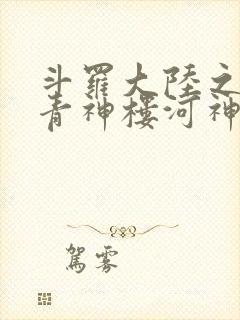 斗羅大陸之
青神樓河神
駕雾